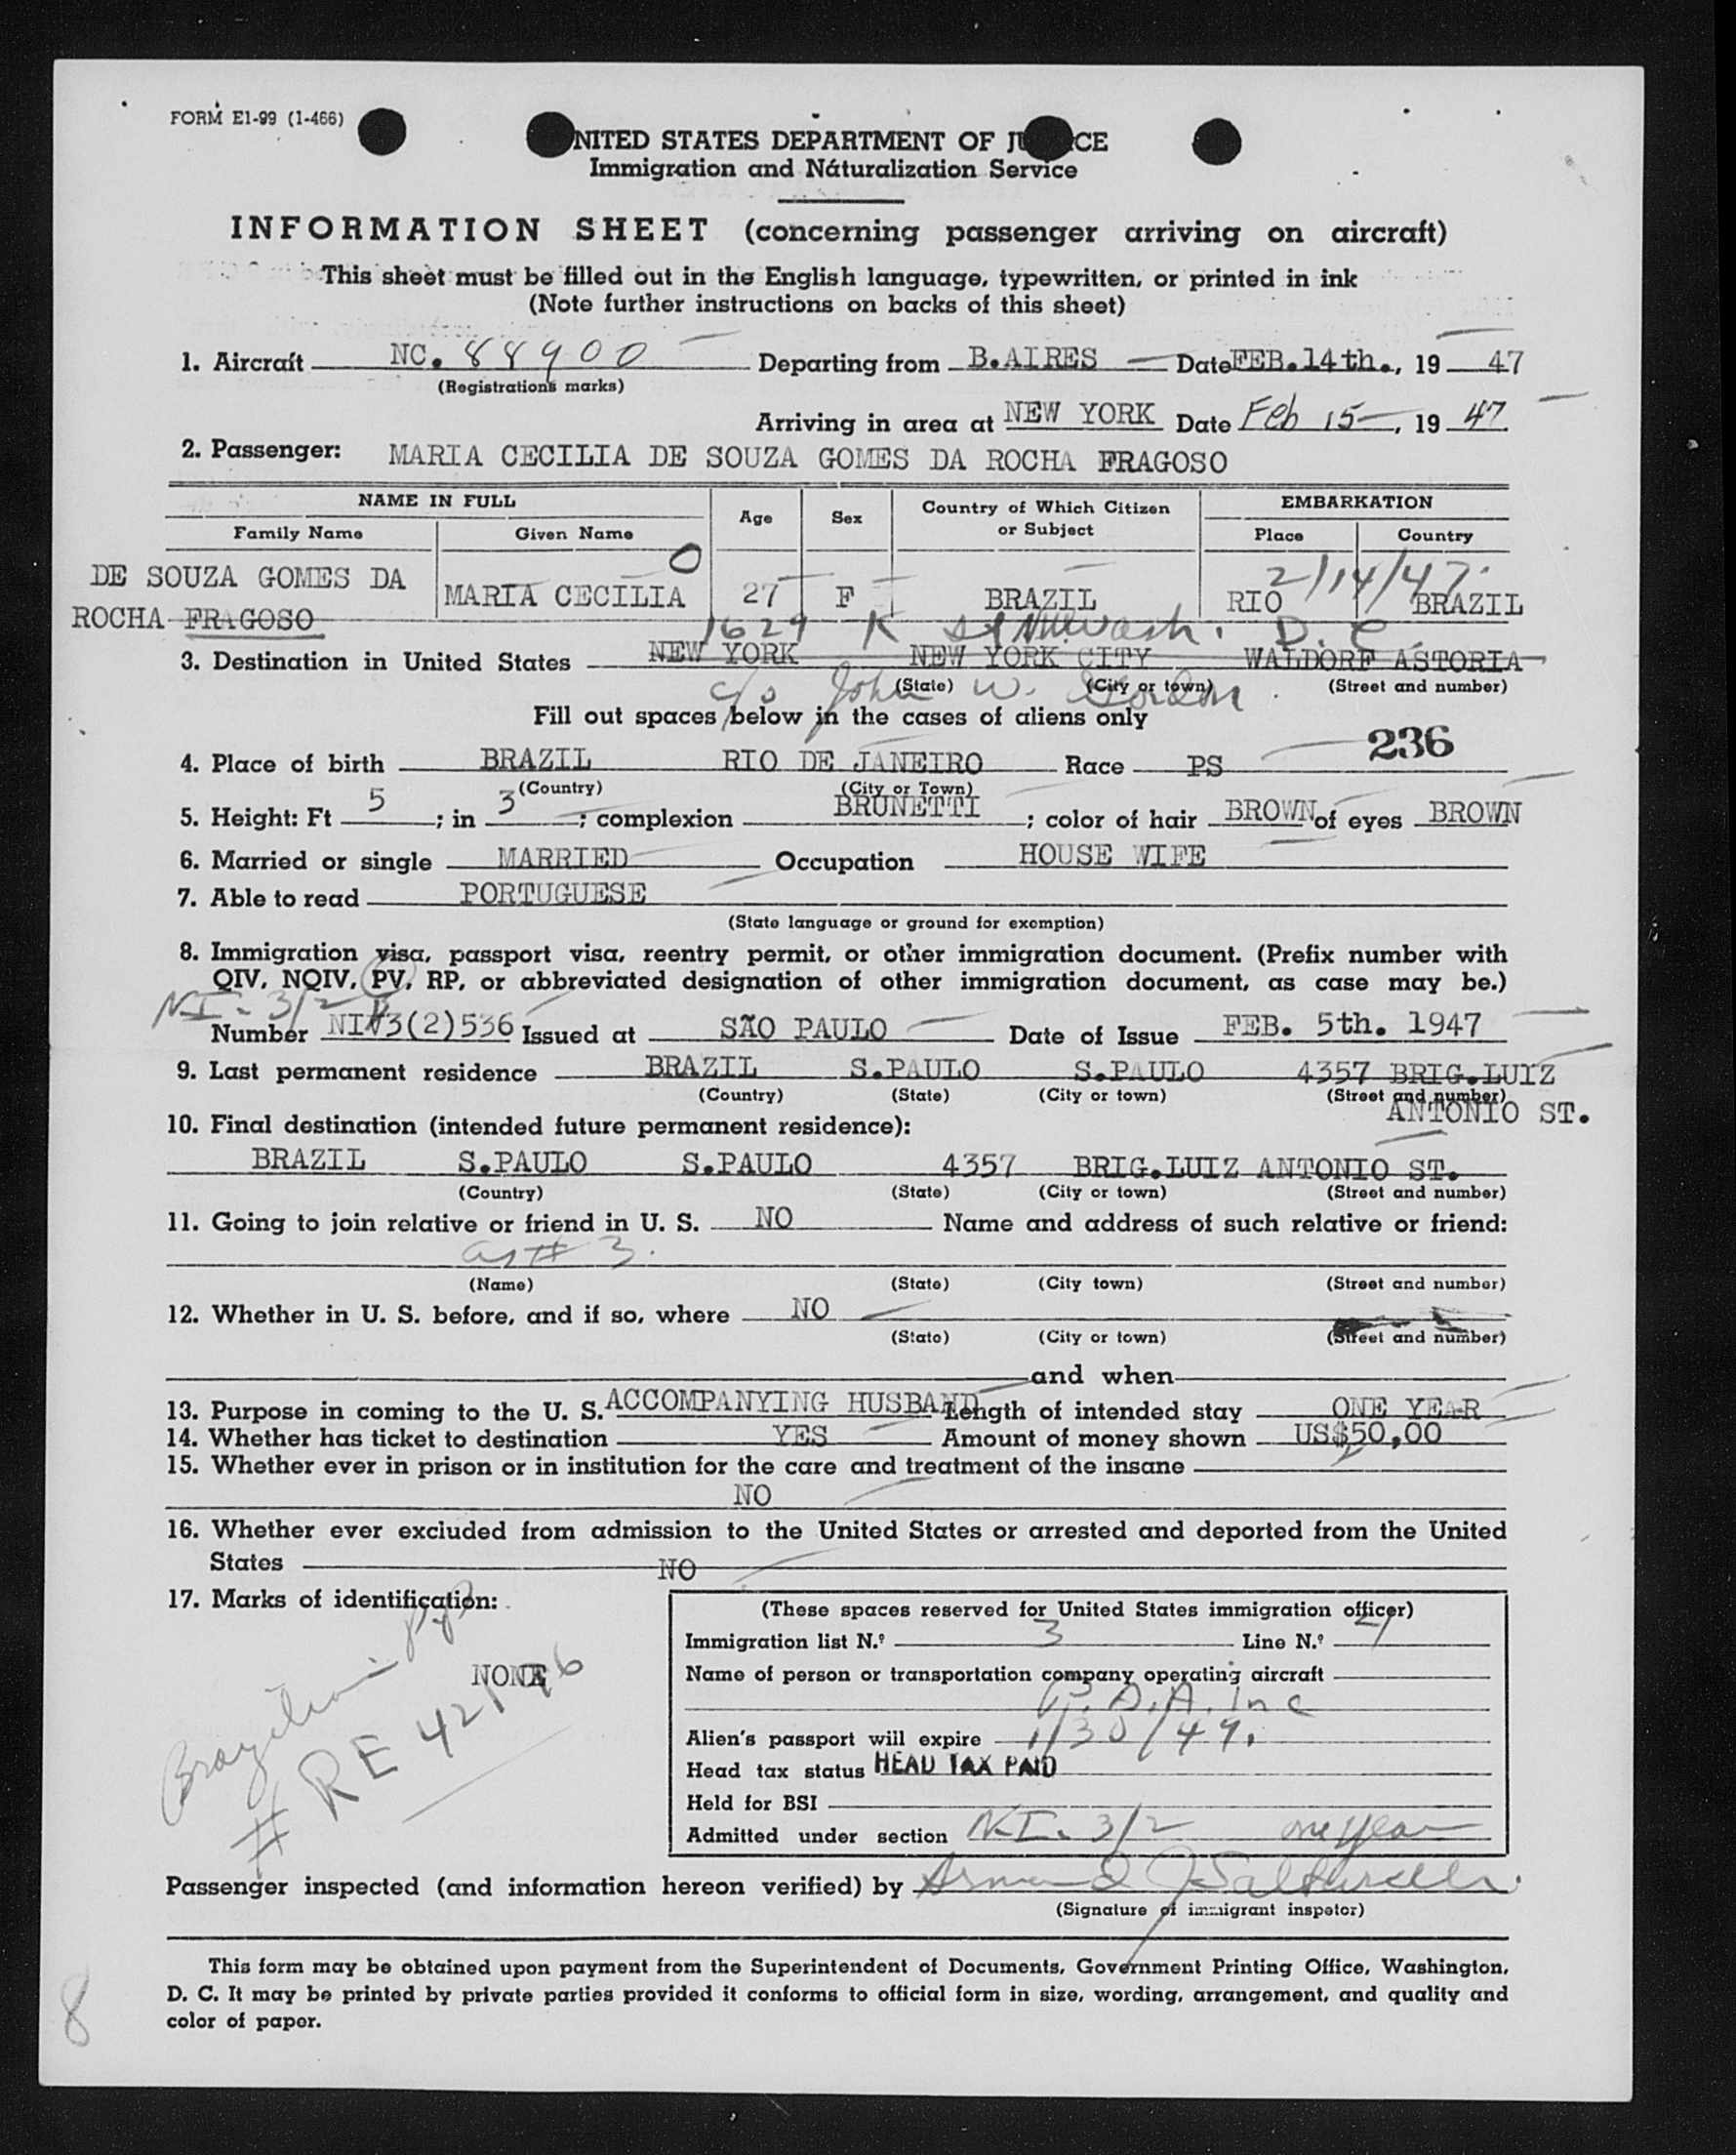 FORM E1-99 (1-466)
NITED STATES DEPARTMENT OF JU CE
Immigration and Naturalization Service
INFORMATION SHEET (concerning passenger arriving on aircraft)
This sheet must be filled out in the English language, typewritten, or printed in ink
(Note further instructions on backs of this sheet)
1. Aircraft NC. 88900 Departing from B.AIRES Date FEB.14th., 19 47
(Registrations marks)
Arriving in area at NEW YORK Date Feb 15, 19 47
2. Passenger: MARIA CECILIA DE SOUZA GOMES DA ROCHA FRAGOSO
NAME IN FULL Age Sex Country of Which Citizen or Subject EMBARKATION
Family Name Given Name Place Country
DE SOUZA GOMES DA 0 2/14/47.
ROCHA FRAGOSO MARIA CECILIA 27 F BRAZIL RIO BRAZIL
1629 K St NW Wash. D. C.
3. Destination in United States NEW YORK NEW YORK CITY WALDORF ASTORIA
(State) (City or town) (Street and number)
c/o John W. Gordon
Fill out spaces below in the cases of aliens only
236
4. Place of birth BRAZIL RIO DE JANEIRO Race PS
(Country) (City or Town)
5. Height: Ft 5; in 3; complexion BRUNETTI; color of hair BROWN of eyes BROWN
6. Married or single MARRIED Occupation HOUSE WIFE
7. Able to read PORTUGUESE
(State language or ground for exemption)
8. Immigration visa, passport visa, reentry permit, or other immigration document. (Prefix number with
QIV, NQIV, PV, RP, or abbreviated designation of other immigration document, as case may be.)
NI-3/2
Number NIV3(2)536 Issued at SÃO PAULO Date of Issue FEB. 5th. 1947
9. Last permanent residence BRAZIL S.PAULO S.PAULO 4357 BRIG.LUIZ
(Country) (State) (City or town) (Street and number)
ANTONIO ST.
10. Final destination (intended future permanent residence):
BRAZIL S.PAULO S.PAULO 4357 BRIG.LUIZ ANTONIO ST.
(Country) (State) (City or town) (Street and number)
11. Going to join relative or friend in U. S. NO Name and address of such relative or friend:
as # 3.
(Name) (State) (City town) (Street and number)
12. Whether in U. S. before, and if so, where NO
(State) (City or town) (Street and number)
and when
13. Purpose in coming to the U. S. ACCOMPANYING HUSBAND Length of intended stay ONE YEAR
14. Whether has ticket to destination YES Amount of money shown US$50,00
15. Whether ever in prison or in institution for the care and treatment of the insane
NO
16. Whether ever excluded from admission to the United States or arrested and deported from the United
States NO
17. Marks of identification:
NONE
Brazilian PP
# RE 42196
(These spaces reserved for United States immigration officer)
Immigration list N.º 3 Line N.º 21
Name of person or transportation company operating aircraft
P.A.A. Inc
Alien's passport will expire 1/30/49.
Head tax status HEAD TAX PAID
Held for BSI
Admitted under section NI-3/2 one year
Passenger inspected (and information hereon verified) by
(Signature of immigrant inspetor)
This form may be obtained upon payment from the Superintendent of Documents, Government Printing Office, Washington,
D. C. It may be printed by private parties provided it conforms to official form in size, wording, arrangement, and quality and
color of paper.
8